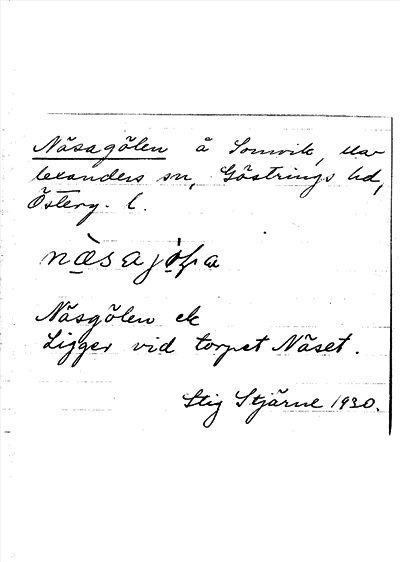 Näsagölen å Sonvik,
lexanders sn, Göstrings hd,
Österg. l.
Näsgölen ek
Ligger vid torpet Näset.
Stig Stjärne 1930.